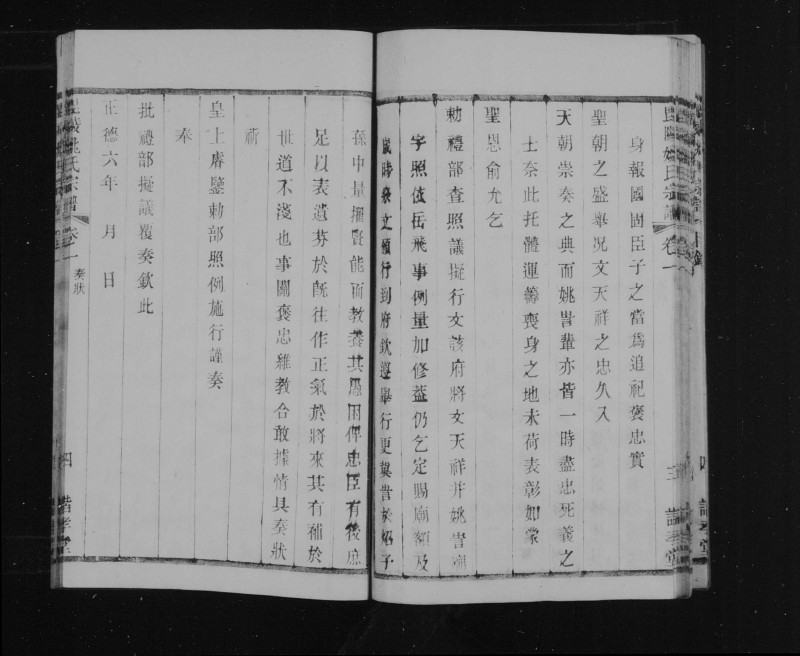 身報國固臣子之當爲追祀褒忠實
聖朝之盛舉況文天祥之忠久入
天朝崇奏之典而姚訔輩亦皆一時盡忠死義之
士奈此托體運籌喪身之地未荷表彰如蒙
聖恩俞允乞
勅禮部查照議擬行文該府將文天祥并姚訔廟
宇照依岳飛事例量加修葢仍乞定賜廟額及
歲時祭文頒行到府欽遵舉行更莫訔於姚子
孫中量擢賢能而教養其愚困俾忠臣有後庶
足以表遺芬於旣往作正氣於將來其有補於
世道不淺也事關褒忠維教合敢據情具奏狀
祈
皇上睿鑒勅部照例施行謹奏
奉
批禮部擬議覆奏欽此
正德六年 月 日
姚氏宗譜 卷一 奏狀 四